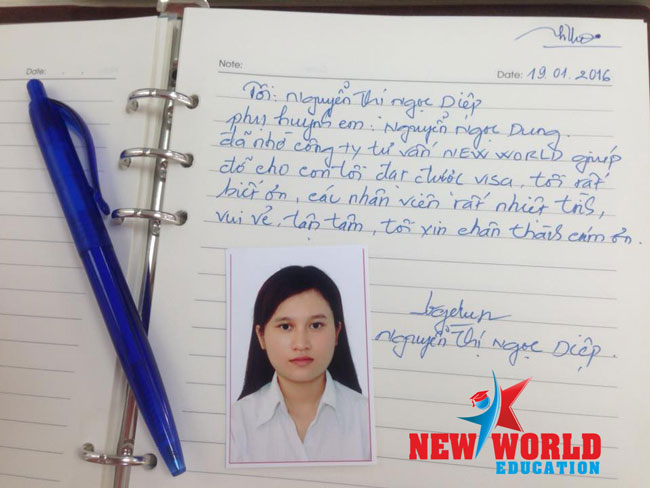 Date:
Note:
Date: 19.01.2016
Tôi: Nguyễn Thị Ngọc Diệp
phụ huynh em: Nguyễn Ngọc Dung.
đã nhờ công ty tư vấn NEW WORLD giúp
đỡ cho con tôi đạt được visa, tôi rất
biết ơn, các nhân viên rất nhiệt tình,
vui vẻ, tận tâm, tôi xin chân thành cám ơn.
Nguyễn Thị Ngọc Diệp.
NEW WORLD
EDUCATION